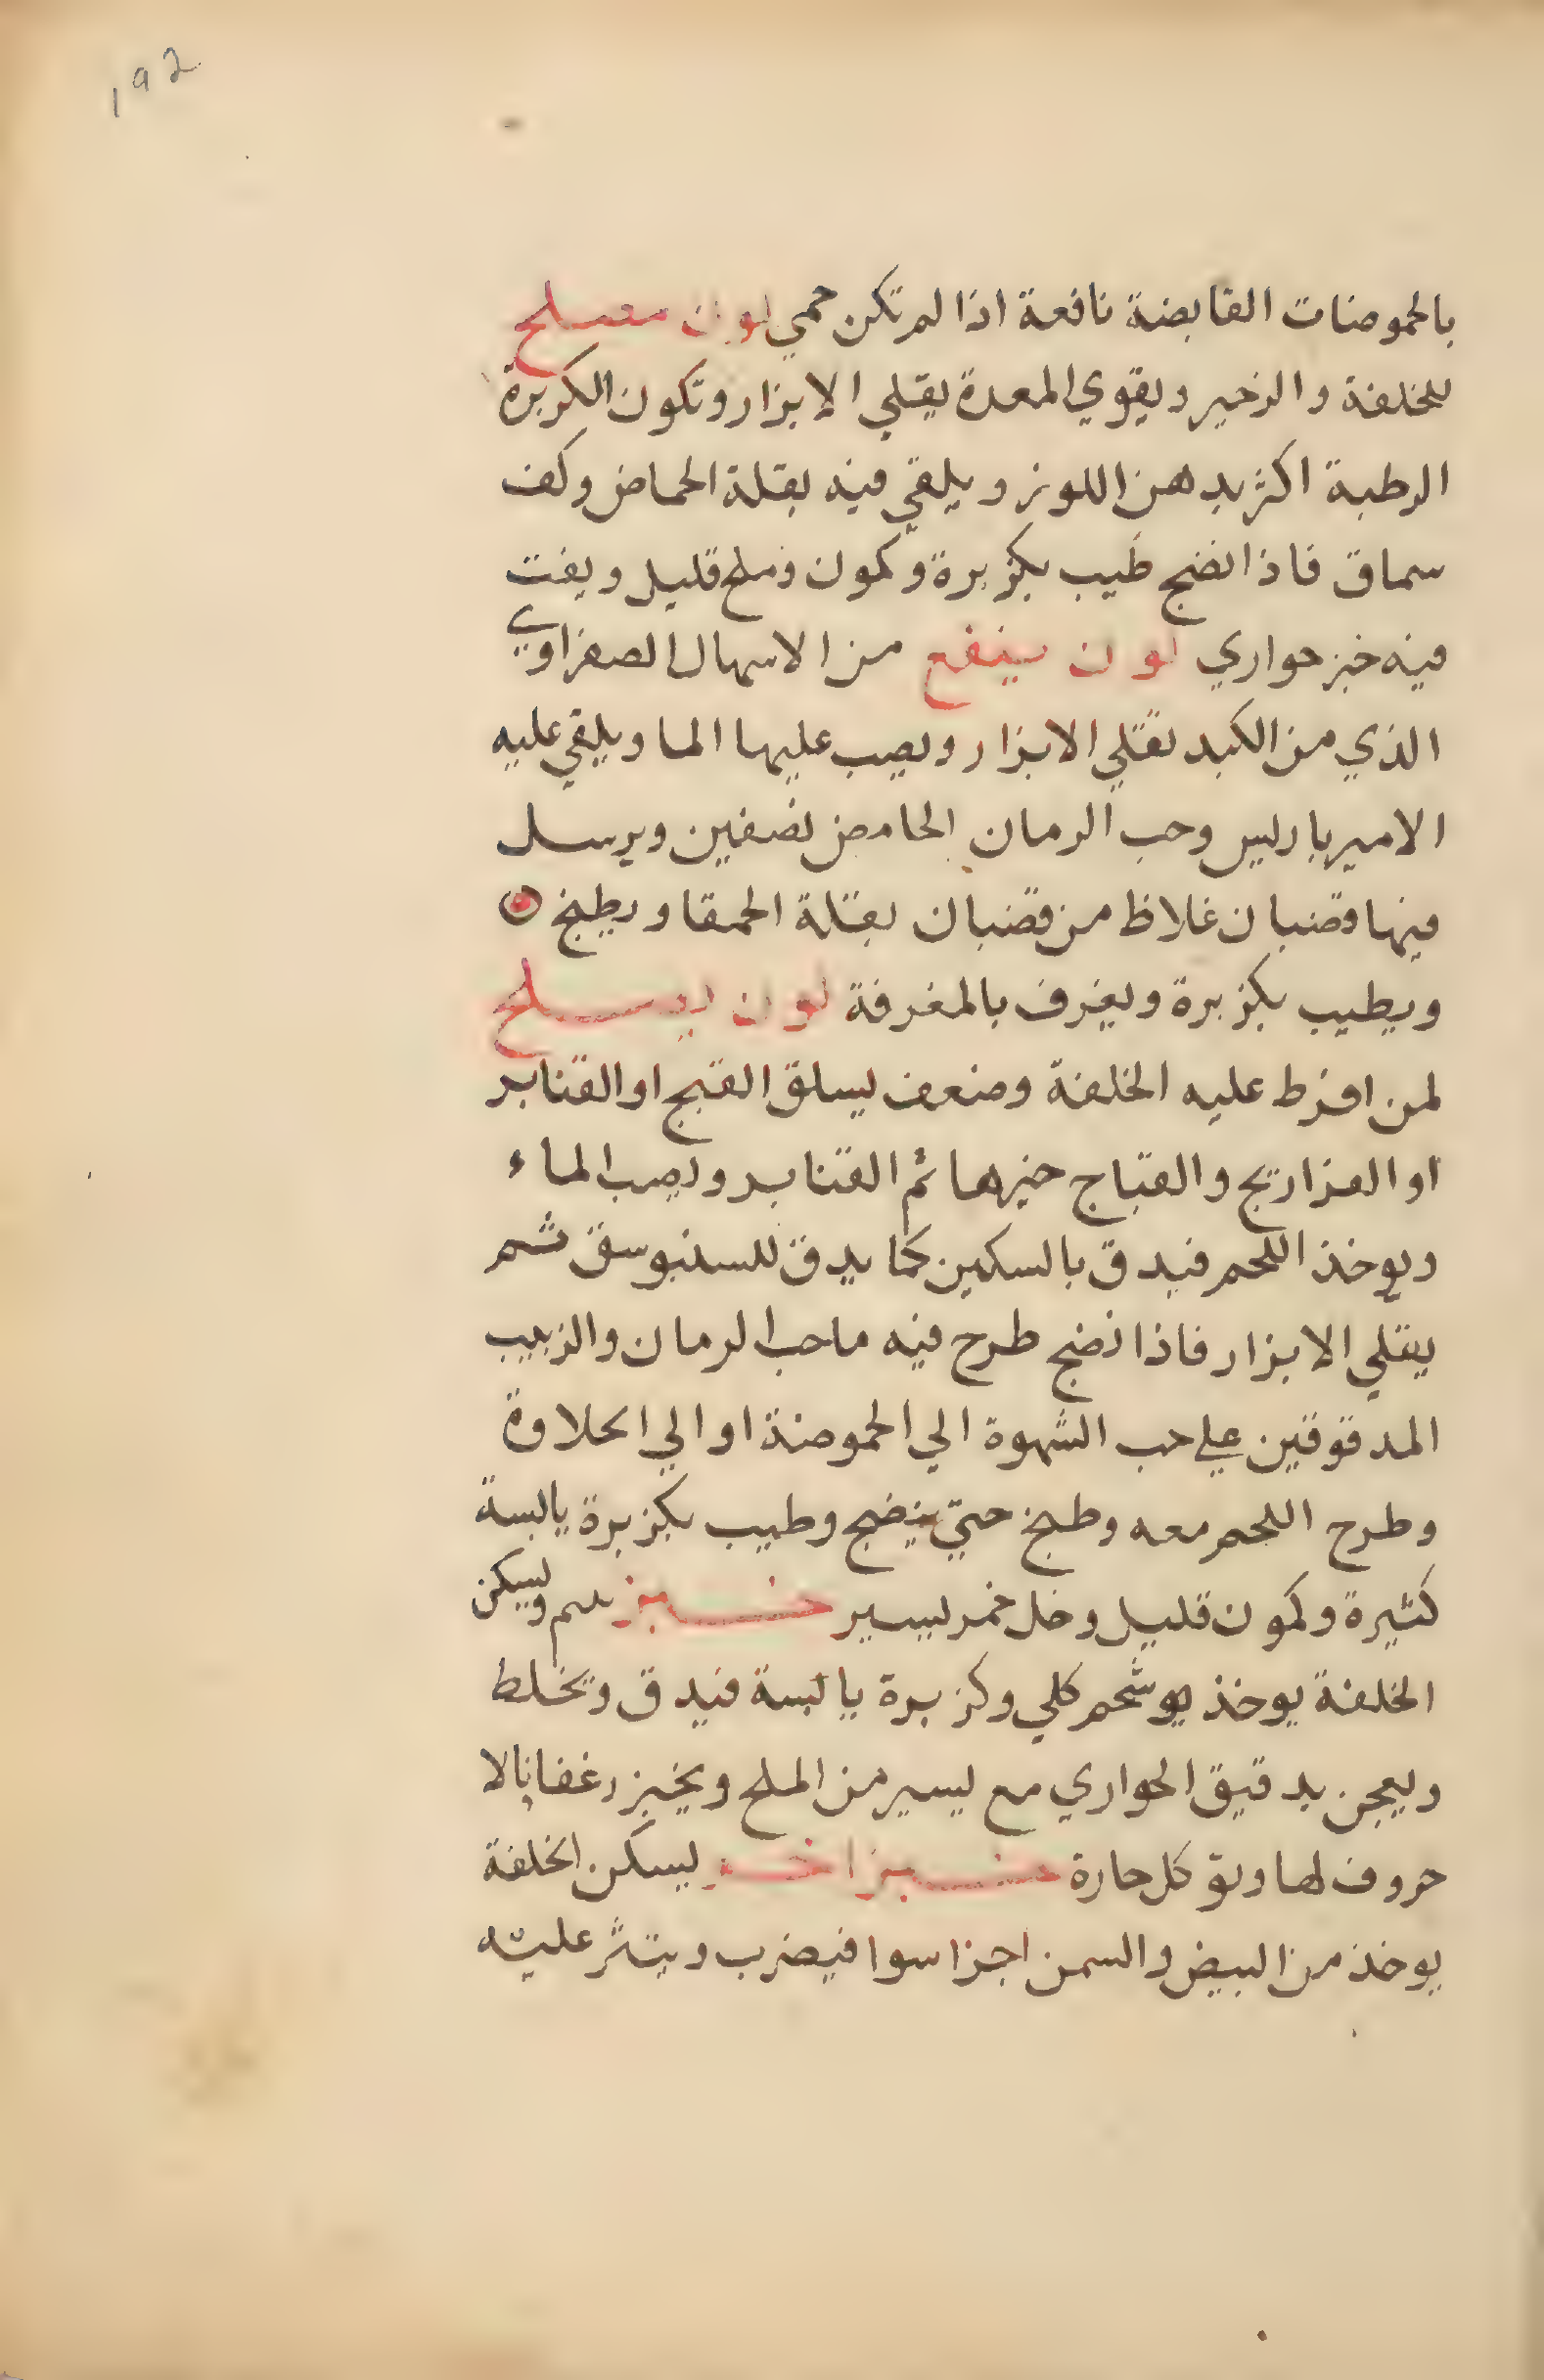 192
بالحموضات القابضة نافعة اذا لم تكن حمي لون مصلح
للخلفة والزحير ويقوي المعدة يقلي الابزار وتكون الكزبرة
الرطبة اكثر بدهن اللوز ويلقي فيه بقلة الحماض وكف
سماق فاذا نضج طيب بكزبرة وكمون وملح قليل ويفت
فيه خبز حواري لون ينفع من الاسهال الصفراوي
الذي من الكبد تقلي الابزار ويصب عليها الما ويلقي عليه
الامير باريس وحب الرمان الحامض نصفين ويرسل
فيها قضبان غلاظ من قضبان بقلة الحمقا ويطبخ
ويطيب بكزبرة ويغرف بالمغرفة لون يصلح
لمن افرط عليه الخلفة وضعف يسلق القبج او القنابر
او الفراريج والقباج خيرها ثم القنابر ويصب الماء
ويوخذ اللحم فيدق بالسكين كما يدق للسنبوسق ثم
يقلي الابزار فاذا نضج طرح فيه ماحب الرمان والزبيب
المدقوقين علي حب الشهوة الي الحموضة او الي الحلاوة
وطرح اللحم معه وطبخ حتي ينضج وطيب بكزبرة يابسة
كثيرة وكمون قليل وخل خمر يسير خبز ويسكن
الخلفة يوخذ شحم كلي وكزبرة يابسة فيدق ويخلط
ويعجن بدقيق الحواري مع يسير من الملح ويخبز رغفانا لا
حروف لها وتوكل حارة خبز اخر يسكن الخلفة
يوخذ من البيض والسمن اجزا سوا فيضرب وينثر عليه